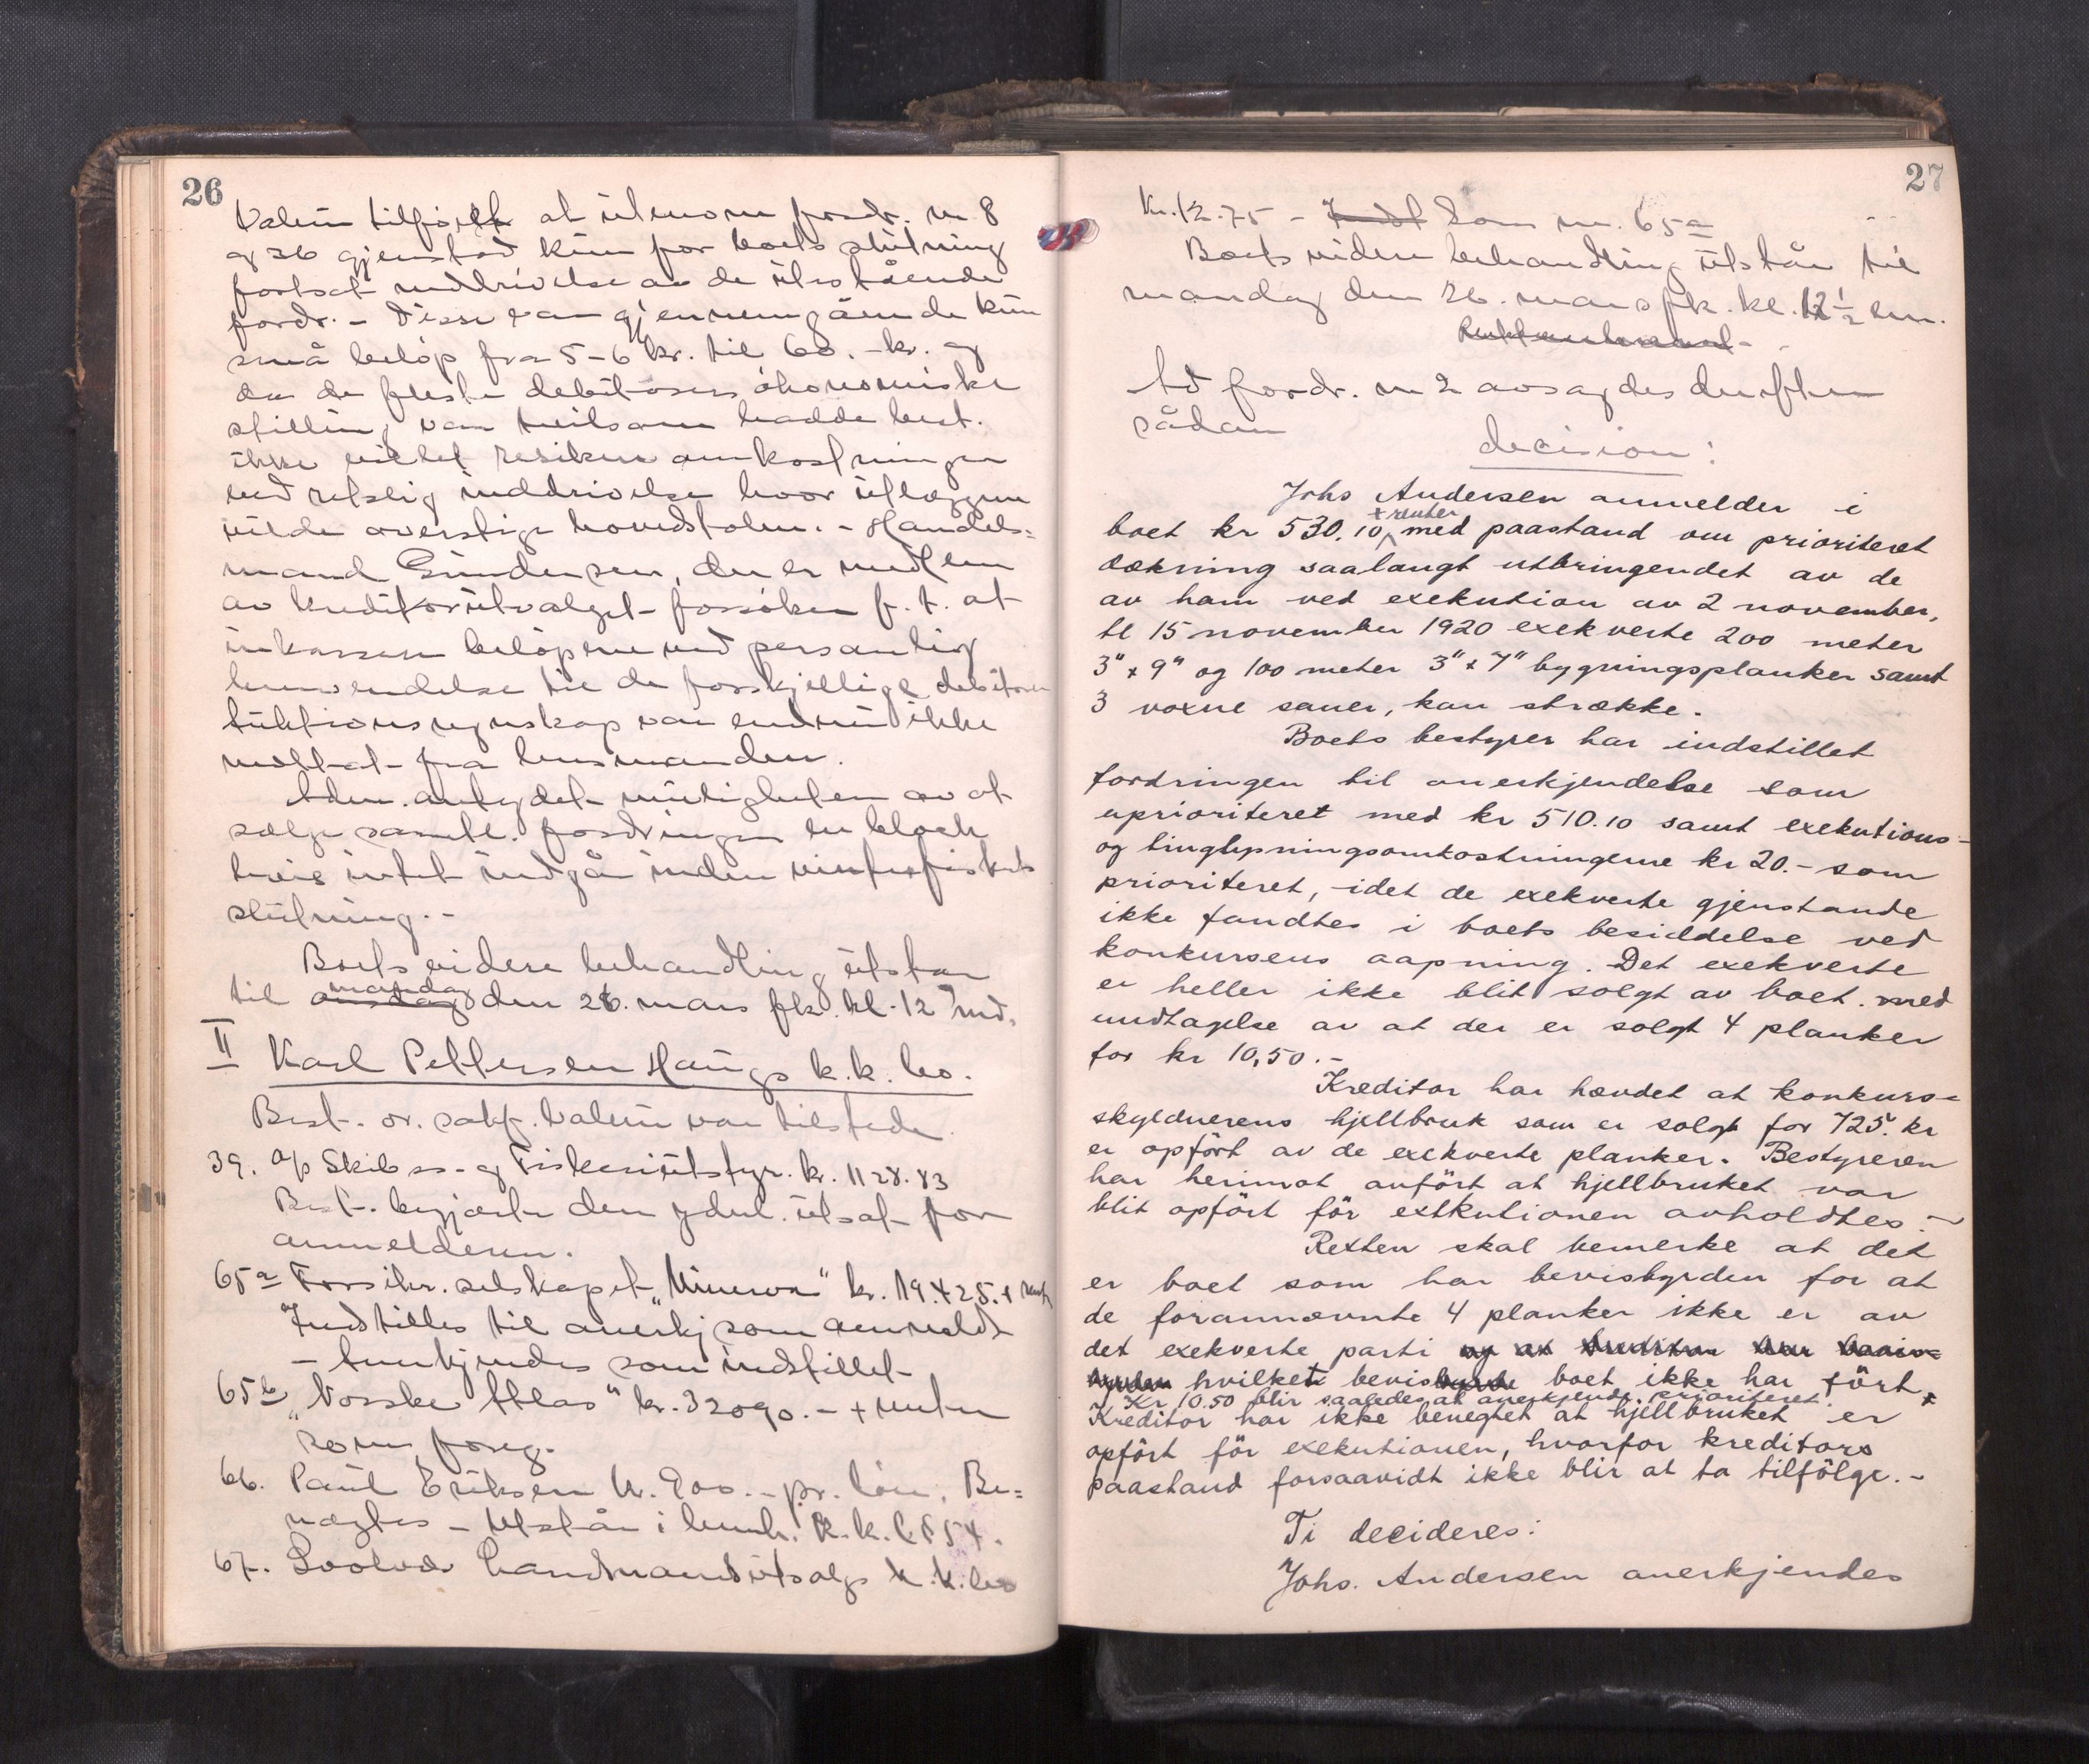 26
Valen tilførte at utenom fordr. nr 8
og 36 gjenstod kun for boets slutning
fortsat inddrivelse av de utestående
fordr. - Disse var gjennemgående kun
små beløp fra 5-6 kr. til 60.- kr. og
da de fleste debitorers økonomiske
stilling var tvilsom hadde best.
ikke villet resikere omkostninger
ved retslig inddrivelse hvor utlæggene
vilde overstige hovedstolen. - Handels=
mand Gundersen, der er medlem
av kreditorutvalget forsøker f. t. at
inkassere beløpene ved personlig
henvendelse til de forskjellige debitorer
Auktionsregnskap var endnu ikke
mottat fra lensmanden.
Adm. antydet muligheten av at
sælge samtl. fordringer en block
hvis intet indgår inden vinterfiskets
slutning. -
Boets videre behandling utstår
til onsdag mandag den 26. mars fk. kl. 12 md.
II Karl Pettersen Haugs k.k. bo.
Best. o.r. sakf. Valen var tilstede.
39. A/s Skibs- og Fiskeriutstyr. kr. 1128.83
Best. begjærte den yderl. utsat for
anmelderen.
65a Forsikr. selskapet "Minerva" kr. 119.425.+ rent.
Indstilles til anerkj som anmeldt
- Anerkjendes som indstillet
65b "Norske Atlas" kr. 32090.- + renter
som foreg.
66. Paul Eriksen kr. 900.- pr. løn. Be=
nægtes - Utstår i henh. K.k.l. § 54.
67. Svolvær Handmandsutsalgs k.k. bo
27
Kr. 12.75 - Indst Som nr. 65a
Boets videre behandling utstår til
mandag den 26. mars fk. kl. 12 1/2 em.
Ad fordr. nr 2 avsagdes derefter
sådan
decision:
Johs Andersen anmelder i
+ renter
boet kr 530.10 med paastand om prioritert
dækning saalangt utbringendet av de
av ham ved exekution av 2 november,
tl 15 november 1920 exekverte 200 meter
3" x 9" og 100 meter 3" x 7" bygningsplanker samt
3 voxne sauer, kan strække.
Boets bestyrer har indstillet
fordringen til anerkjendelse som
uprioriteret med kr 510.10 samt exekutions-
og tinglysningsomkostningerne kr 20.- som
prioriteret, idet de exekverte gjenstande
ikke fandtes i boets besiddelse ved
konkursens aapning. Det exekverte
er heller ikke blit solgt av boet. med
undtagelse av at der er solgt 4 planker
for kr 10,50.-
Kreditor har hævdet at konkurs=
skyldnerens hjellbruk som er solgt for 725. kr
er opført av de exekverte planker. Bestyreren
har herimot anført at hjellbruket var
blit opført før exekutionen avholdtes.-
Retten skal bemerke at det
er boet som har bevisbyrden for at
de forannævnte 4 planker ikke er av
det exekverte parti og at kreditor har bevis=
byrden hvilket bevisbyrde boet ikke har ført x
x Kr 10.50 blir saaledes at anerkjende prioriteret.
Kreditor har ikke benegtet at hjellbruket er
opført før exekutionen, hvorfor kreditors
paastand forsaavidt ikke blir at ta tilfølge.-
Ti decideres:
Johs. Andersen anerkjendes